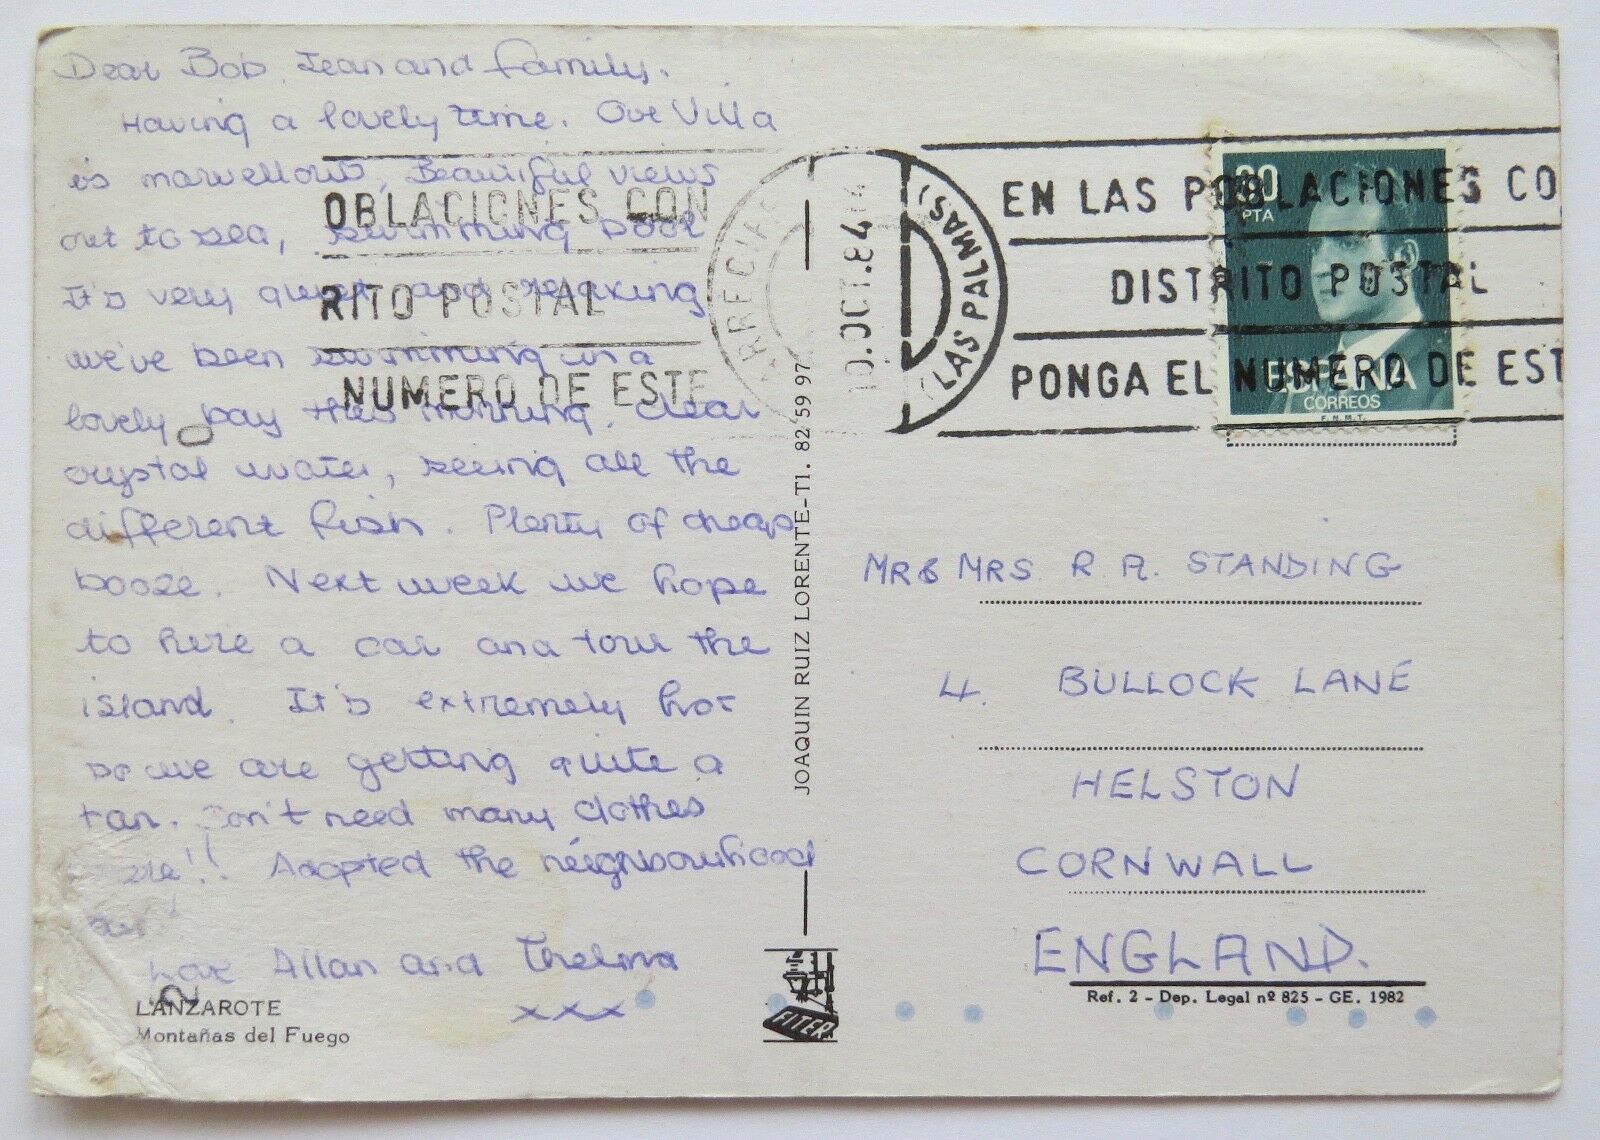 Dear Bob, Jean and family.
Having a lovely time. Our Villa
is marvellous, Beautiful views
out to sea, swimming pool
It's very quiet and relaxing
we've been swimming in a
lovely bay this morning, clear
crystal water, seeing all the
different fish. Plenty of cheap
booze. Next week we hope
to hire a car and tour the
island. It's extremely hot
so we are getting quite a
tan. Don't need many clothes
!! Adopted the neighbourhood
Love Allan and Thelma
xxx
LANZAROTE
Montañas del Fuego
OBLACIONES CON
RITO POSTAL
NUMERO DE ESTE
ARRECIFE
(LAS PALMAS)
10.OCT.84
EN LAS POBLACIONES CO
DISTRITO POSTAL
PONGA EL NUMERO DE EST
PTA
ESPAÑA
CORREOS
F.N.M.T.
JOAQUIN RUIZ LORENTE-Tl. 82 59 97
FITER
MR & MRS R A. STANDING
4. BULLOCK LANE
HELSTON
CORNWALL
ENGLAND.
Ref. 2 - Dep. Legal nº 825 - GE. 1982